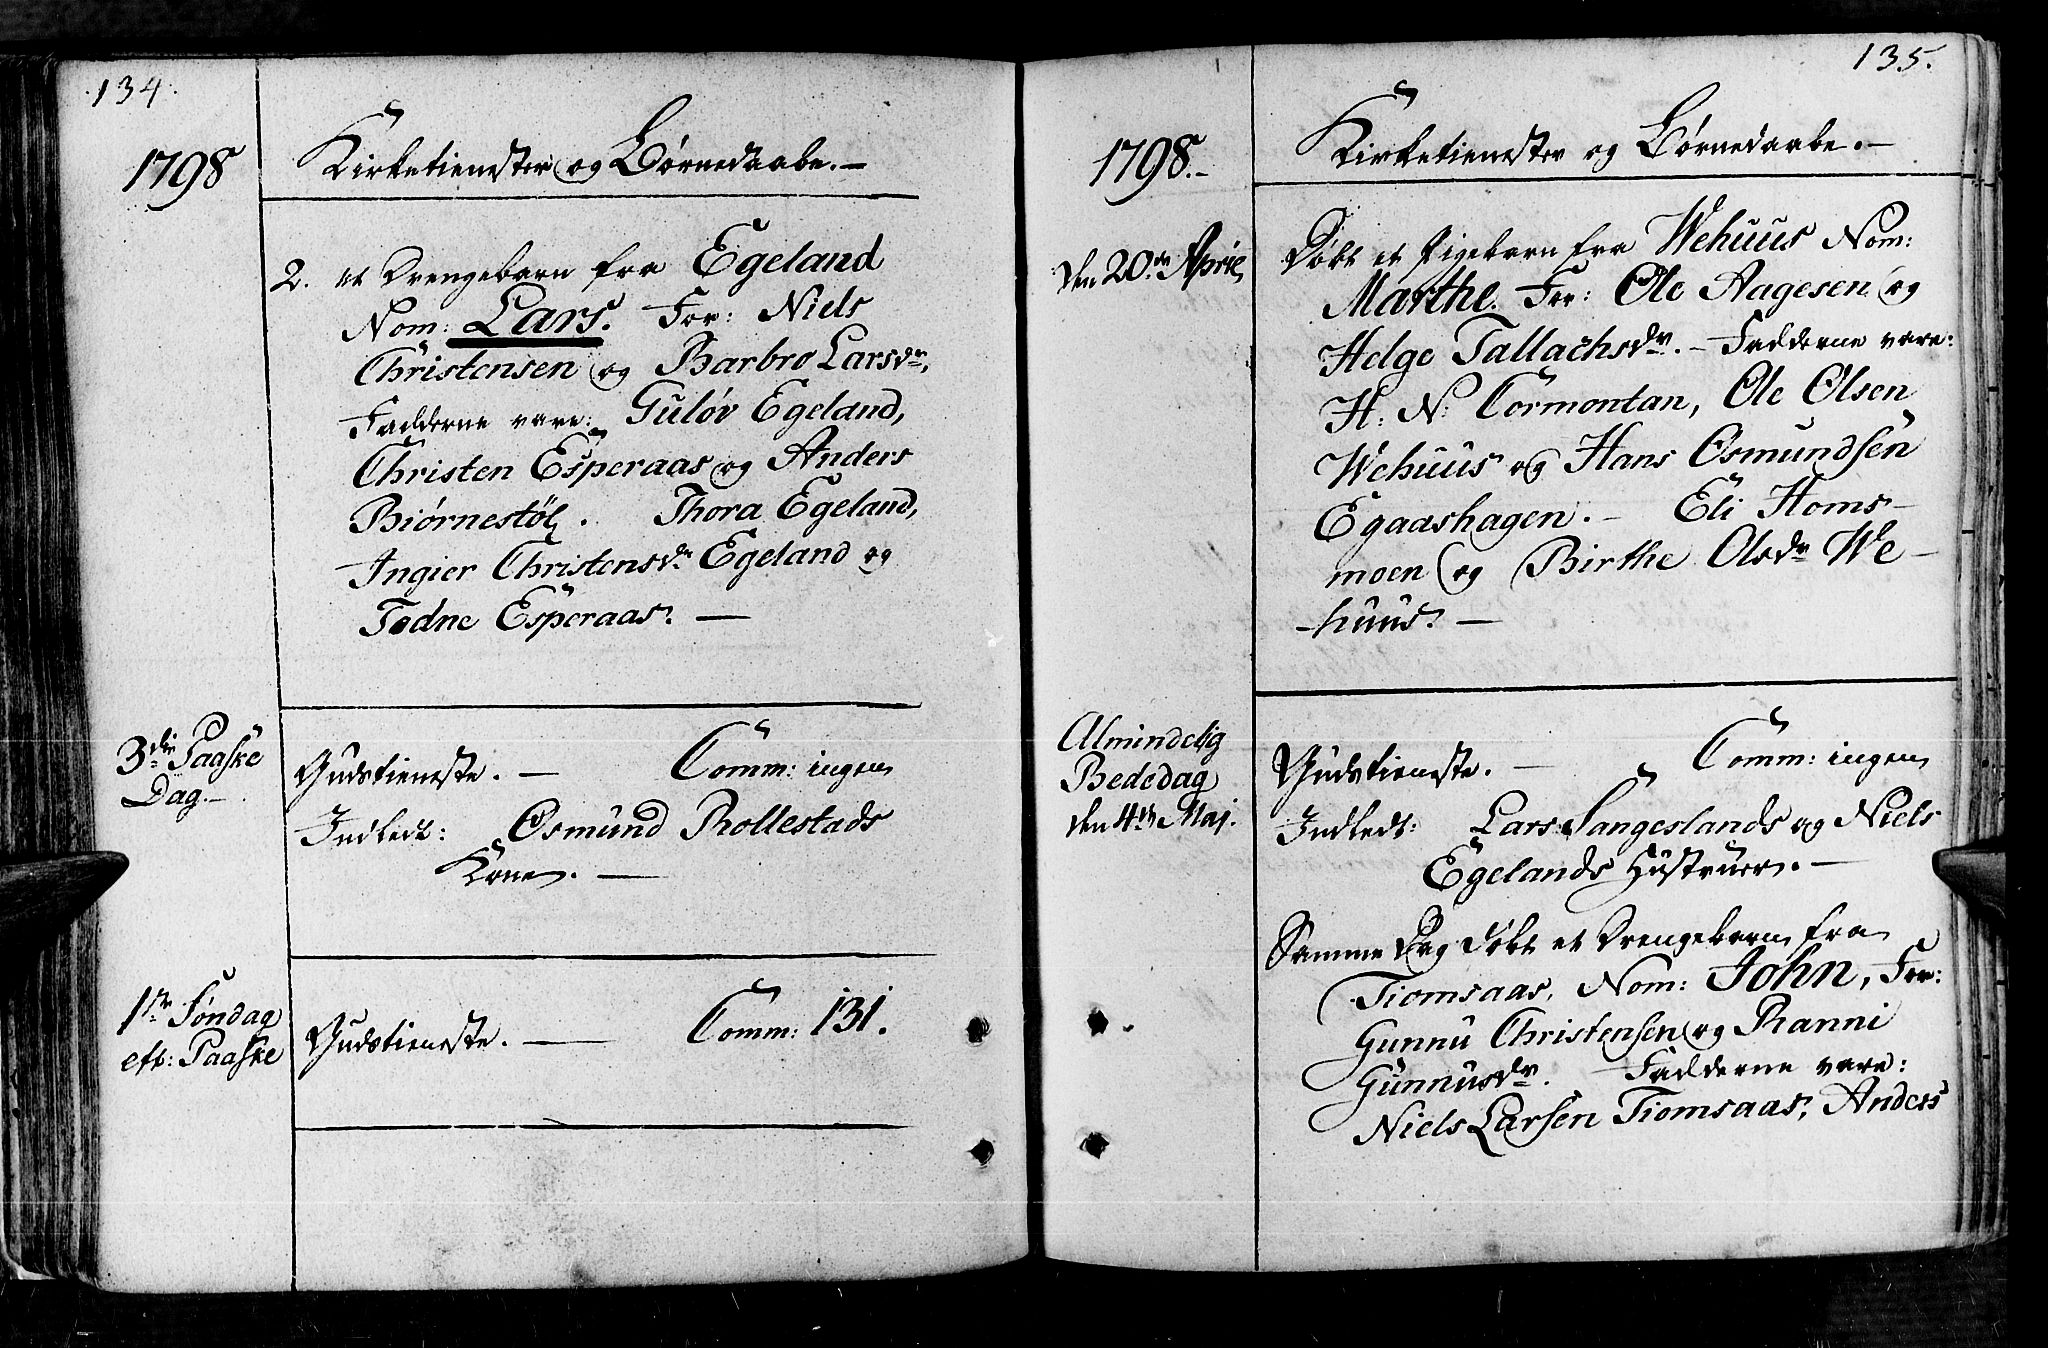 134.
1798
Kirketienester og Børnedaabe.—
2. et Drengebarn fra Egeland
Nom: Lars. For: Niels
Christensen og Barbro Larsdr.
Fadderne vare: Guløv Egeland,
Christen Esperaas og Anders
Biørnestöl. Thora Egeland,
Ingier Christensdr Egeland og
Todne Esperaas.—
3die Paaske
Dag.—
Gudstieneste.— Comm: ingen
Indledt: Osmund Rollestads
Kone.—
1ste Søndag
eft: Paaske
Gudstieneste.— Comm: 131.
135.
1798.—
Kirketienester og Børnedaabe.—
den 20de April
Døbt et Pigebarn fra Wehuus Nom:
Marthe. For: Ole Aagesen og
Helge Tallachsdr.— Fadderne vare:
H: N: Cormontan, Ole Olsen
Wehuus og Hans Osmundsen
Egaashagen.— Eli Homs-
moen og Birthe Olsdr We-
huus.—
Almindelig
Bededag
den 4de Maj.
Gudstieneste.— Comm: ingen
Indledt: Lars Langeslands og Niels
Egelands Hustruer.—
Samme Dag døbt et Drengebarn fra
Tiomsaas, Nom: John, For:
Gunnu Christensen og Ranni
Gunnusdr. Fadderne vare:
Niels Larsen Tiomsaas, Anders